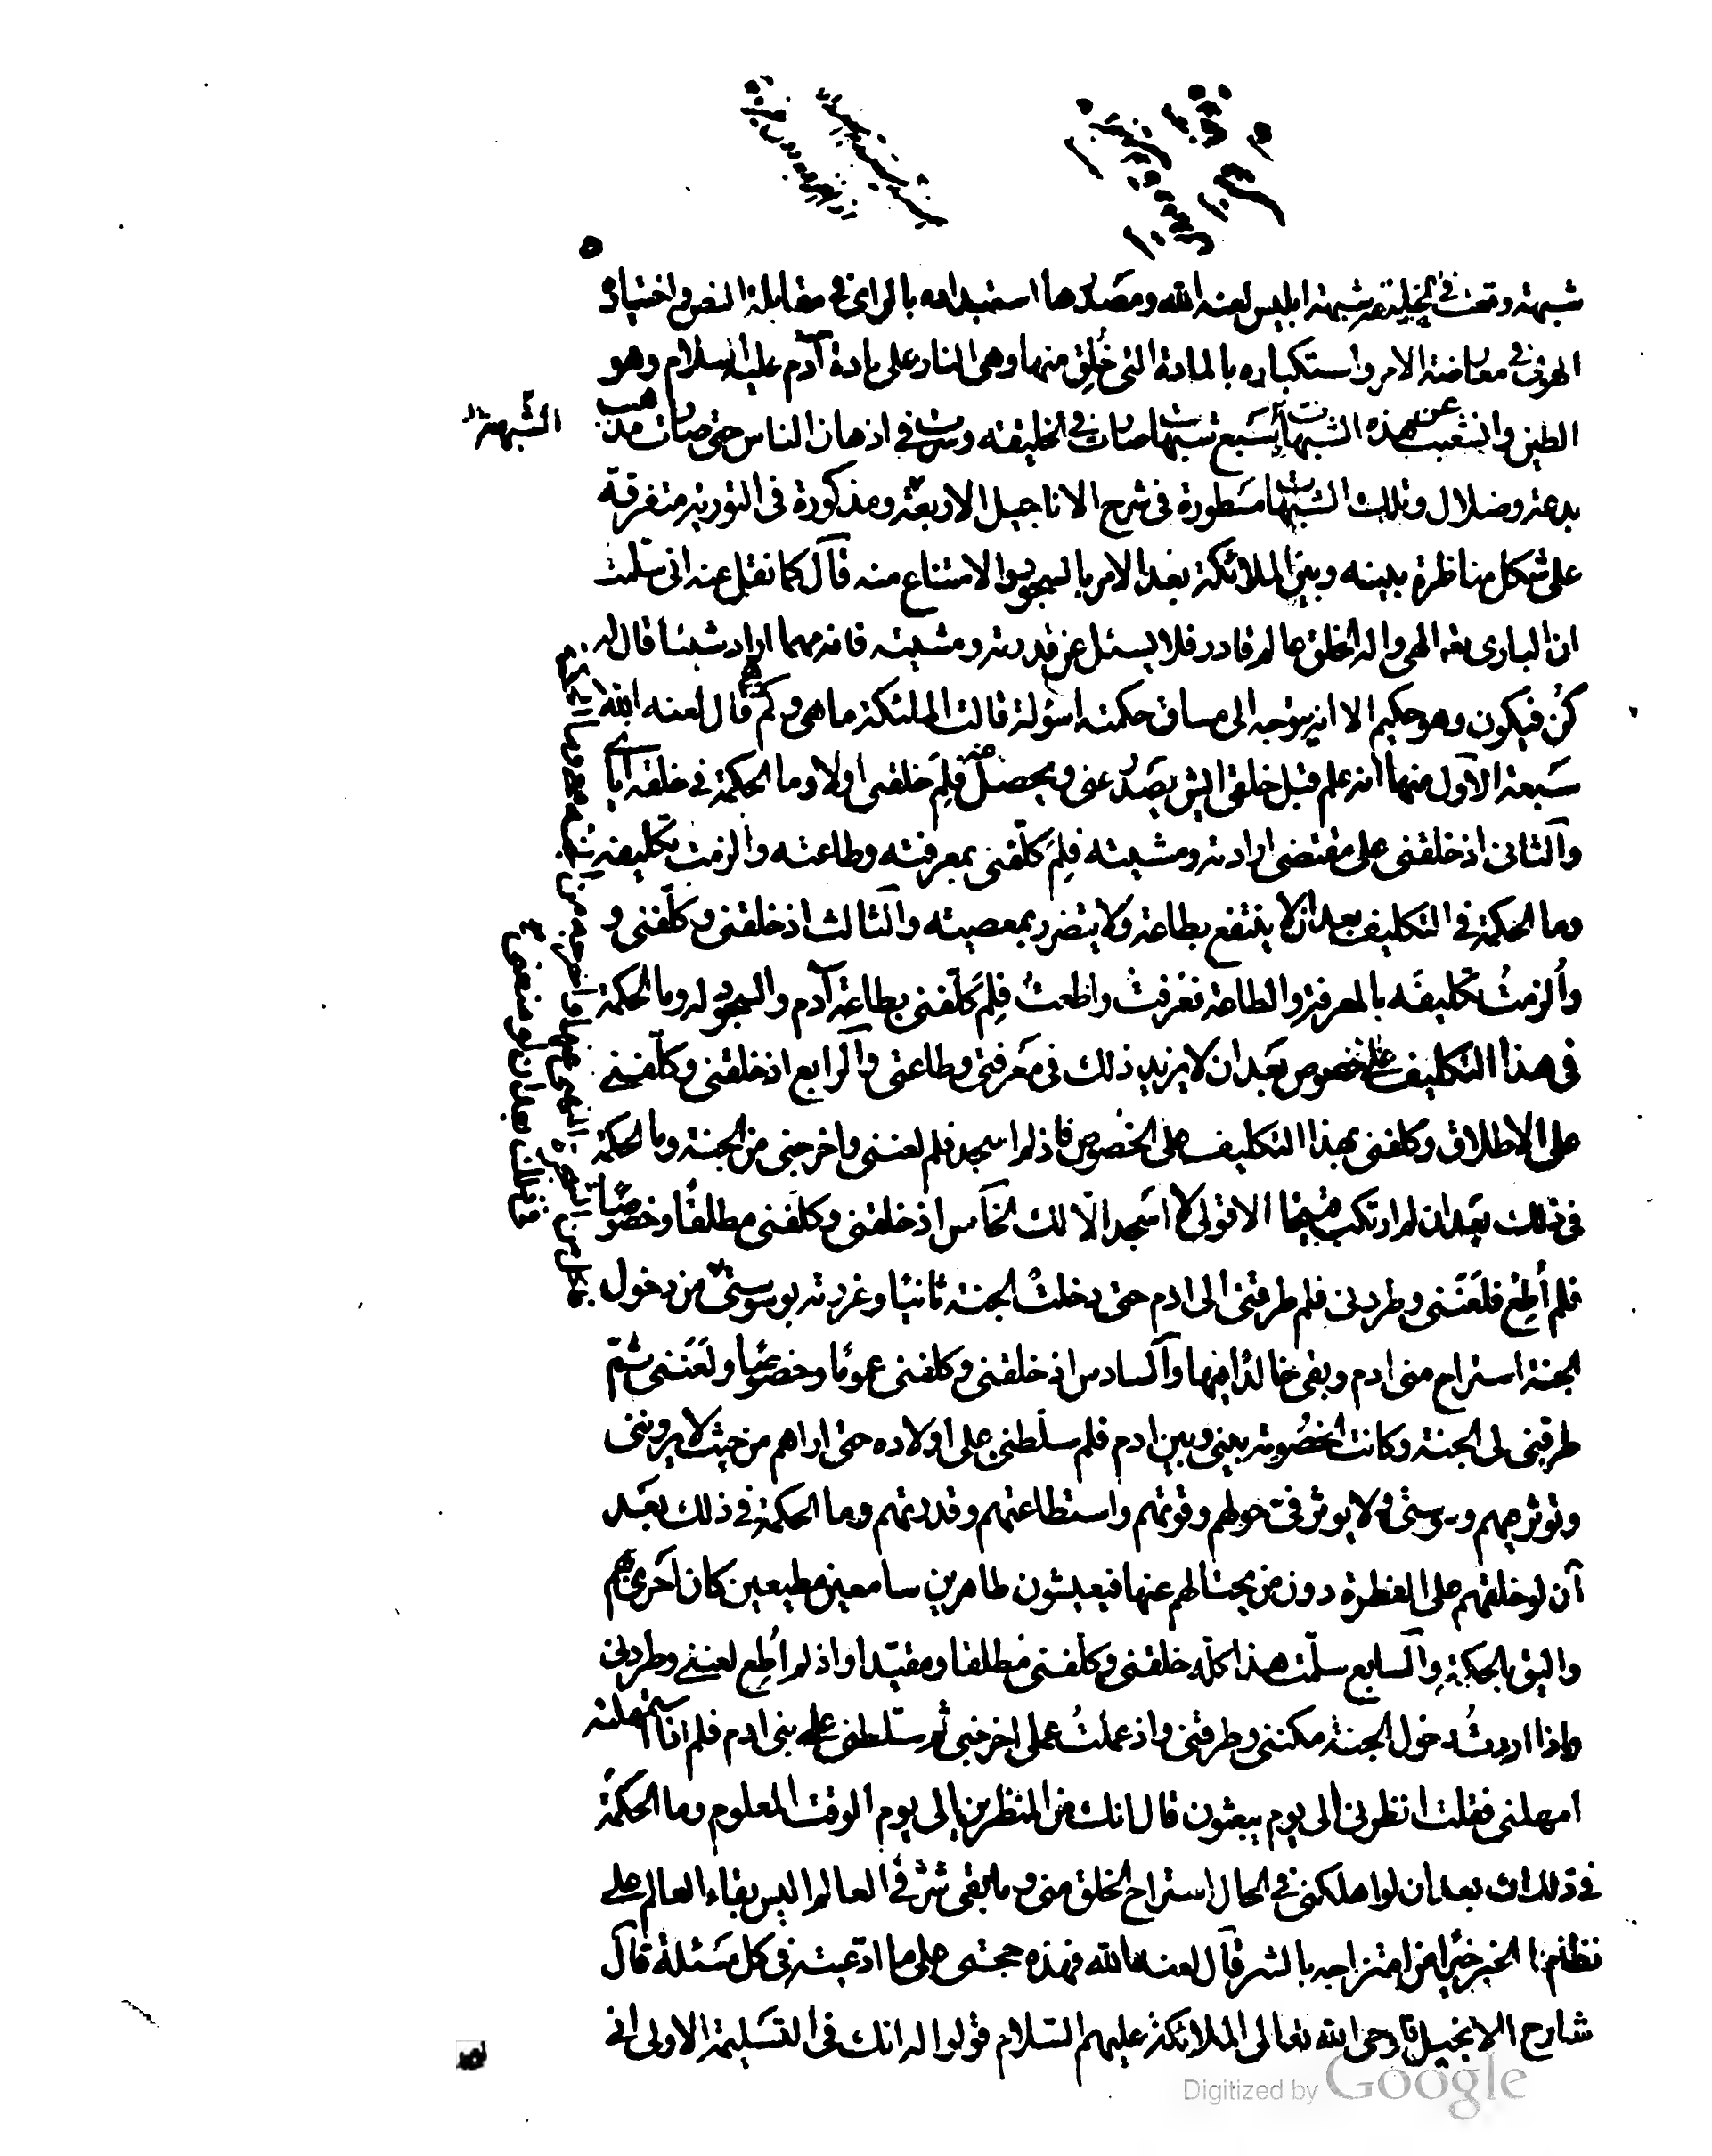 ٥
شبهة وقعت في الخليقة شبهة ابليس لعنه الله ومصدرها استبداده بالرأى في مقابلة النص واختياره
الهوى في معارضة الامر واستكباره بالمادة التى خُلِق منها وهى النار على مادة آدم عليه السلام وهو
الطين وانشعبت عن هذه الشبهات سبع شبهات صارت في الخليقه وسرت في اذهان الناس حتى صارت مذهب
الشبهة
بدعة وضلال وتلك الشبهات مسطورة فى شرح الاناجيل الاربعة ومذكورة فى التورية متفرقة
على شكل مناظرة بينه وبين الملائكة بعد الامر بالسجود والامتناع منه قال كما نقل عنه انى سلّمت
ان البارى تع الهى واله الخلق عالم قادر فلا يسئل عن قدرته ومشيته فانه مهما اراد شيئا قال له
كُن فيكون وهو حكيم الا انه يتوجه الى مساق حكمته اسؤلة قالت الملئكة ما هى وكم قال لعنه الله
سبعة الاول منها انه علم قبل خلقى ايش يصدر عنى ويحصل منى فلِمَ خلقنى اولا وما الحكمة في خلقه اياى
والثانى اذ خلقنى على مقتضى ارادته ومشيته فلِمَ كلّفنى بمعرفته وطاعته والزمت تكليفه
وما الحكمة في التكليف بعد ان لا ينتفع بطاعة ولا يتضرر بمعصيته والثالث اذ خلقنى وكلّفنى و
وأُلزمتُ تكليفَه بالمعرفة والطاعة فعَرفتُ واطعتُ فلِمَ كلّفنى بطاعة آدم والسجود له وما الحكمة
فى هذا التكليف على الخصوص بعد ان لا يزيد ذلك فى معرفتى وطاعتى والرابع اذ خلقنى وكلّفنى
على الاطلاق وكلفنى بهذا التكليف على الخصوص فاذ لم اسجد فلم لعننى واخرجنى من الجنة وما الحكمة
فى ذلك بعد ان لم ارتكب قبيحًا الا قولى لا اسجد الّا لك الخامس اذ خلقنى وكلفنى مطلقًا وخصوصًا
فلم أُطِع فلعننى وطردنى فلم طرقنى الى ادم حتى دخلتُ الجنة ثانيًا وغررته بوسوستى من دخول
الجنة استراح منى ادم وبقى خالدًا فيها والسادس اذ خلقنى وكلفنى عمومًا وخصوصًا ولعننى ثم
طرقنى الى الجنة وكانت الخصومة بينى وبين ادم فلم سلّطنى على اولاده حتى اراهم من حيث لا يروننى
وتوثر فيهم وسوستى ولا يوثر فىّ حولهم وقوتهم واستطاعتهم وقدرتهم وما الحكمة في ذلك بعد
ان لو خلقهم على الفطرة دون من يحتالهم عنها فيعيشون طاهرين سامعين مطيعين كان احرى بهم
واليق بالحكمة والسابع سلّمت هذا كلّه خلقنى وكلّفنى مطلقا ومقيّدا واذ لم اُطِع لعننى وطردنى
واذا اردتُ دخول الجنة مكننى وطرقنى واذ عملتُ عملى اخرجنى ثم سلّطنى على بنى ادم فلم اذا استمهلته
امهلنى فقلت انظرنى الى يوم يبعثون قال انك من المنظرين الى يوم الوقت المعلوم وما الحكمة
في ذلك بعد ان لو اهلكنى في الحال استراح الخلق منى وما بقى شرّ في العالم اليس بقاء العالم على
نظام الخير خيرًا من امتزاجه بالشر قال لعنه الله فهذه حجتى على ما ادّعيته فى كل مسئلة قال
شارح الانجيل فاوحى الله تعالى الى الملائكة عليهم السّلام قولوا له انك فى التسليمة الاولى انى
Digitized by Google